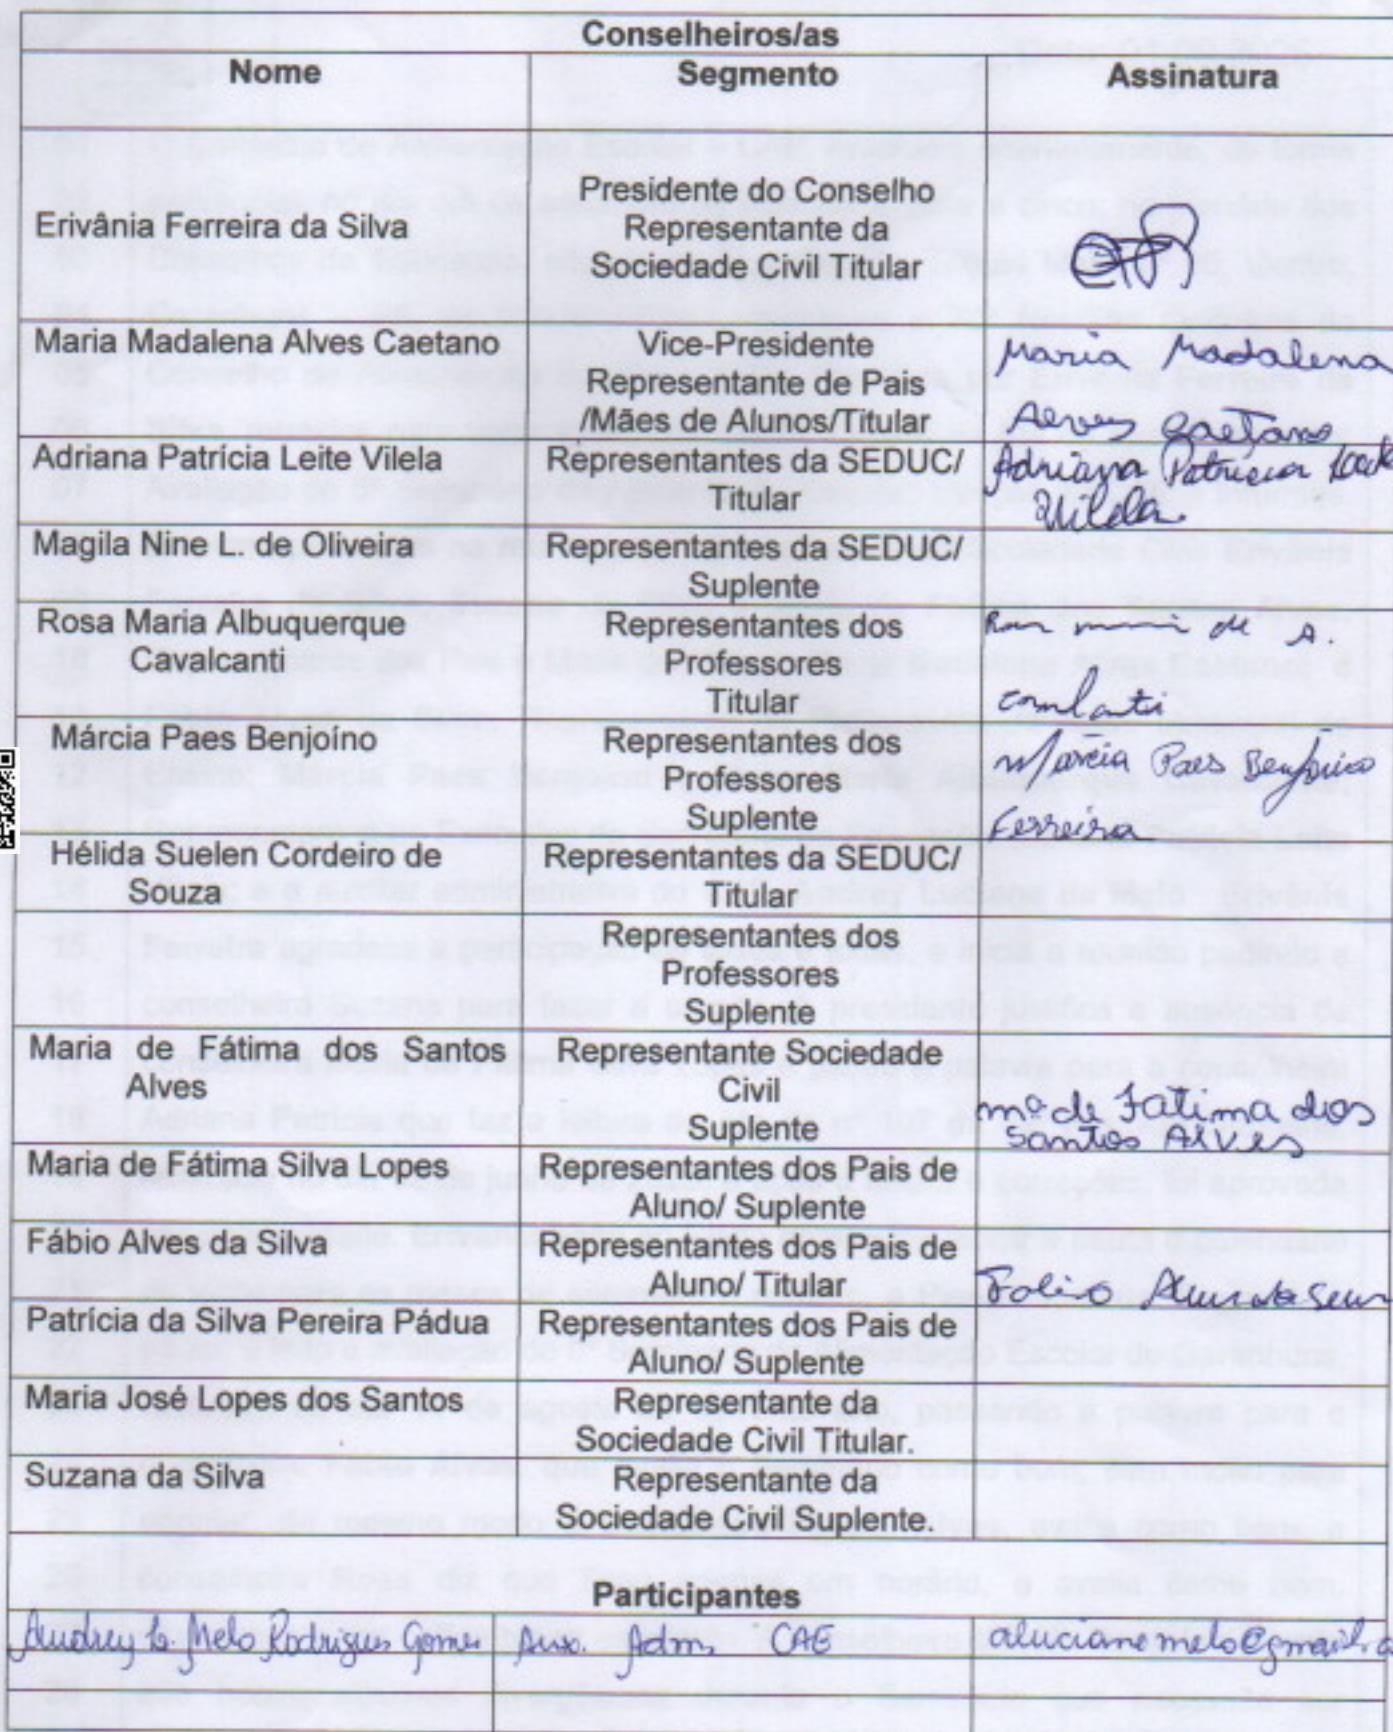 Conselheiros/as
Nome Segmento Assinatura
Erivânia Ferreira da Silva
Presidente do Conselho
Representante da
Sociedade Civil Titular
Maria Madalena Alves Caetano
Vice-Presidente
Representante de Pais
/Mães de Alunos/Titular
Maria Madalena
Alves Caetano
Adriana Patrícia Leite Vilela
Representantes da SEDUC/
Titular
Adriana Patricia Leite
Vilela
Magila Nine L. de Oliveira
Representantes da SEDUC/
Suplente
Rosa Maria Albuquerque
Cavalcanti
Representantes dos
Professores
Titular
de A.
Márcia Paes Benjoíno
Representantes dos
Professores
Suplente
Márcia Paes Benjoíno
Ferreira
Hélida Suelen Cordeiro de
Souza
Representantes da SEDUC/
Titular
Representantes dos
Professores
Suplente
Maria de Fátima dos Santos
Alves
Representante Sociedade
Civil
Suplente
Mª de Fatima dos
Santos Alves
Maria de Fátima Silva Lopes
Representantes dos Pais de
Aluno/ Suplente
Fábio Alves da Silva
Representantes dos Pais de
Aluno/ Titular
Fabio Alves da Silva
Patrícia da Silva Pereira Pádua
Representantes dos Pais de
Aluno/ Suplente
Maria José Lopes dos Santos
Representante da
Sociedade Civil Titular.
Suzana da Silva
Representante da
Sociedade Civil Suplente.
Participantes
Audrey L. Melo Rodrigues Gomes Aux. Adm. CAE alucianomelo@gmail.co